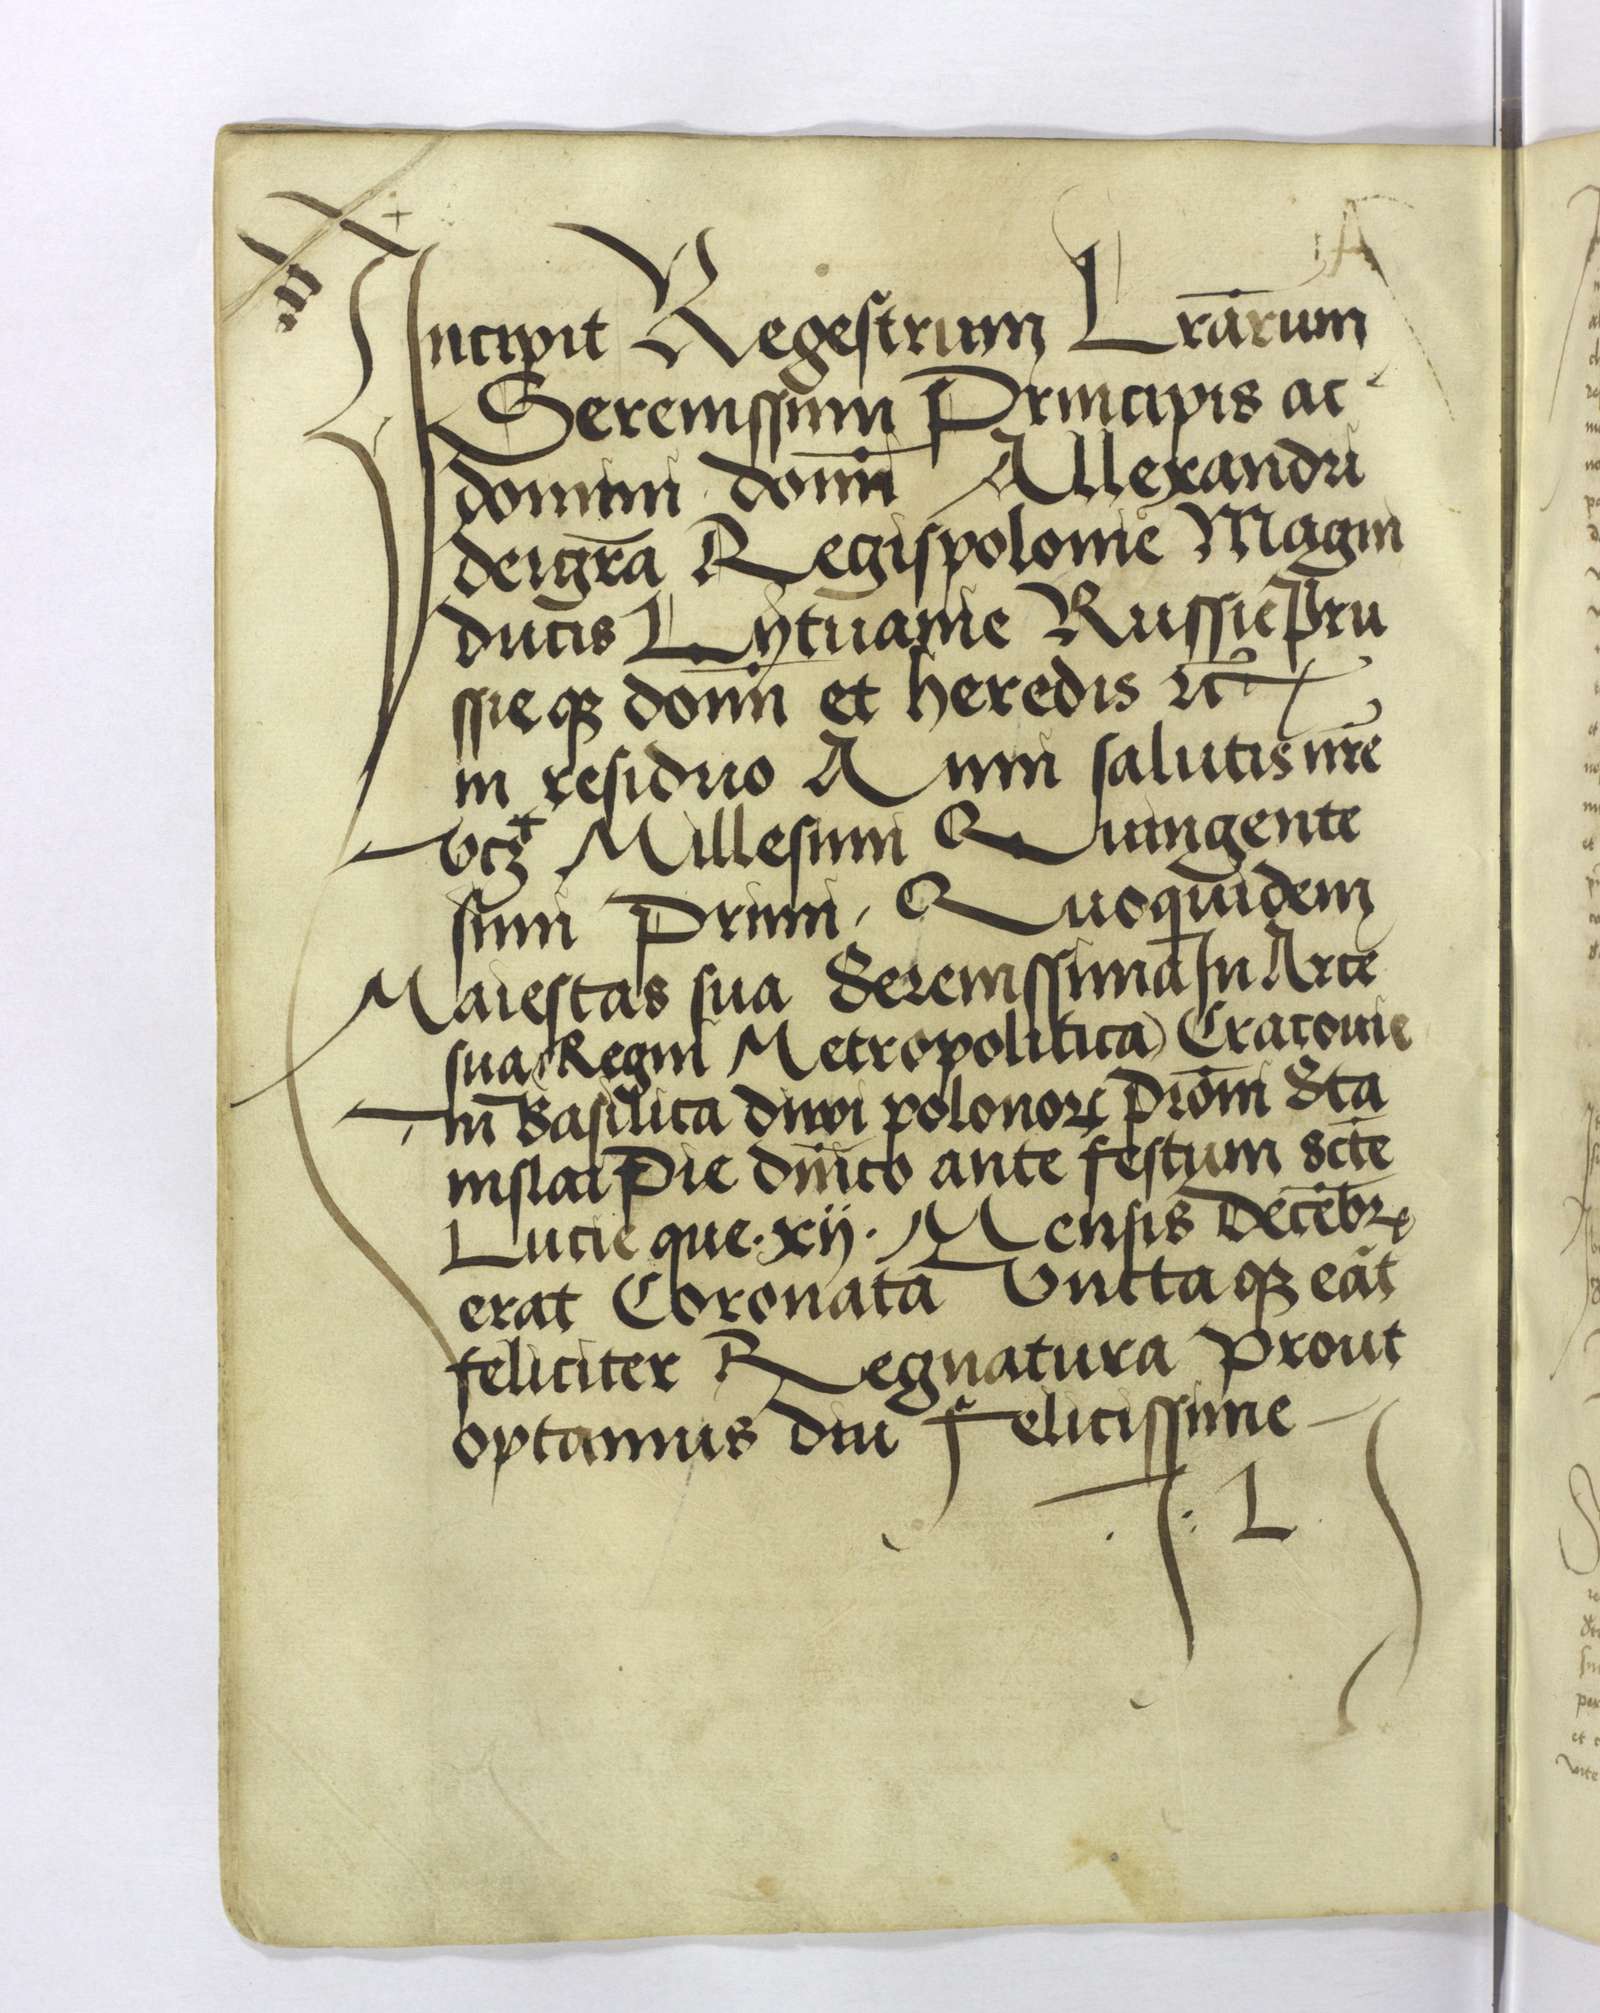 Incipit Regestrum Lr̄arum
Serenissimi Principis ac
domini domī Allexandri
dei gr̄a Regis polonie Magni
ducis Lytuanie Russie Pru
ssie qȝ domī et heredis ⁊c̄
in residuo Anni salutis nr̄e
vcȝ Millesimi Quingente
simi Primi, Quoquidem
Maiestas sua Serenissima In Arce
sua Regni Metropolitica Cracouie
In Basilica diui polonoꝝ p̄roni Sta
nislai Die dn̄ico ante festum sc̄te
Lucie que ·xij· Mensis Decēbꝝ
erat Coronata Unctaqȝ eāt
feliciter Regnatura Prout
optamus diu felicissime
L